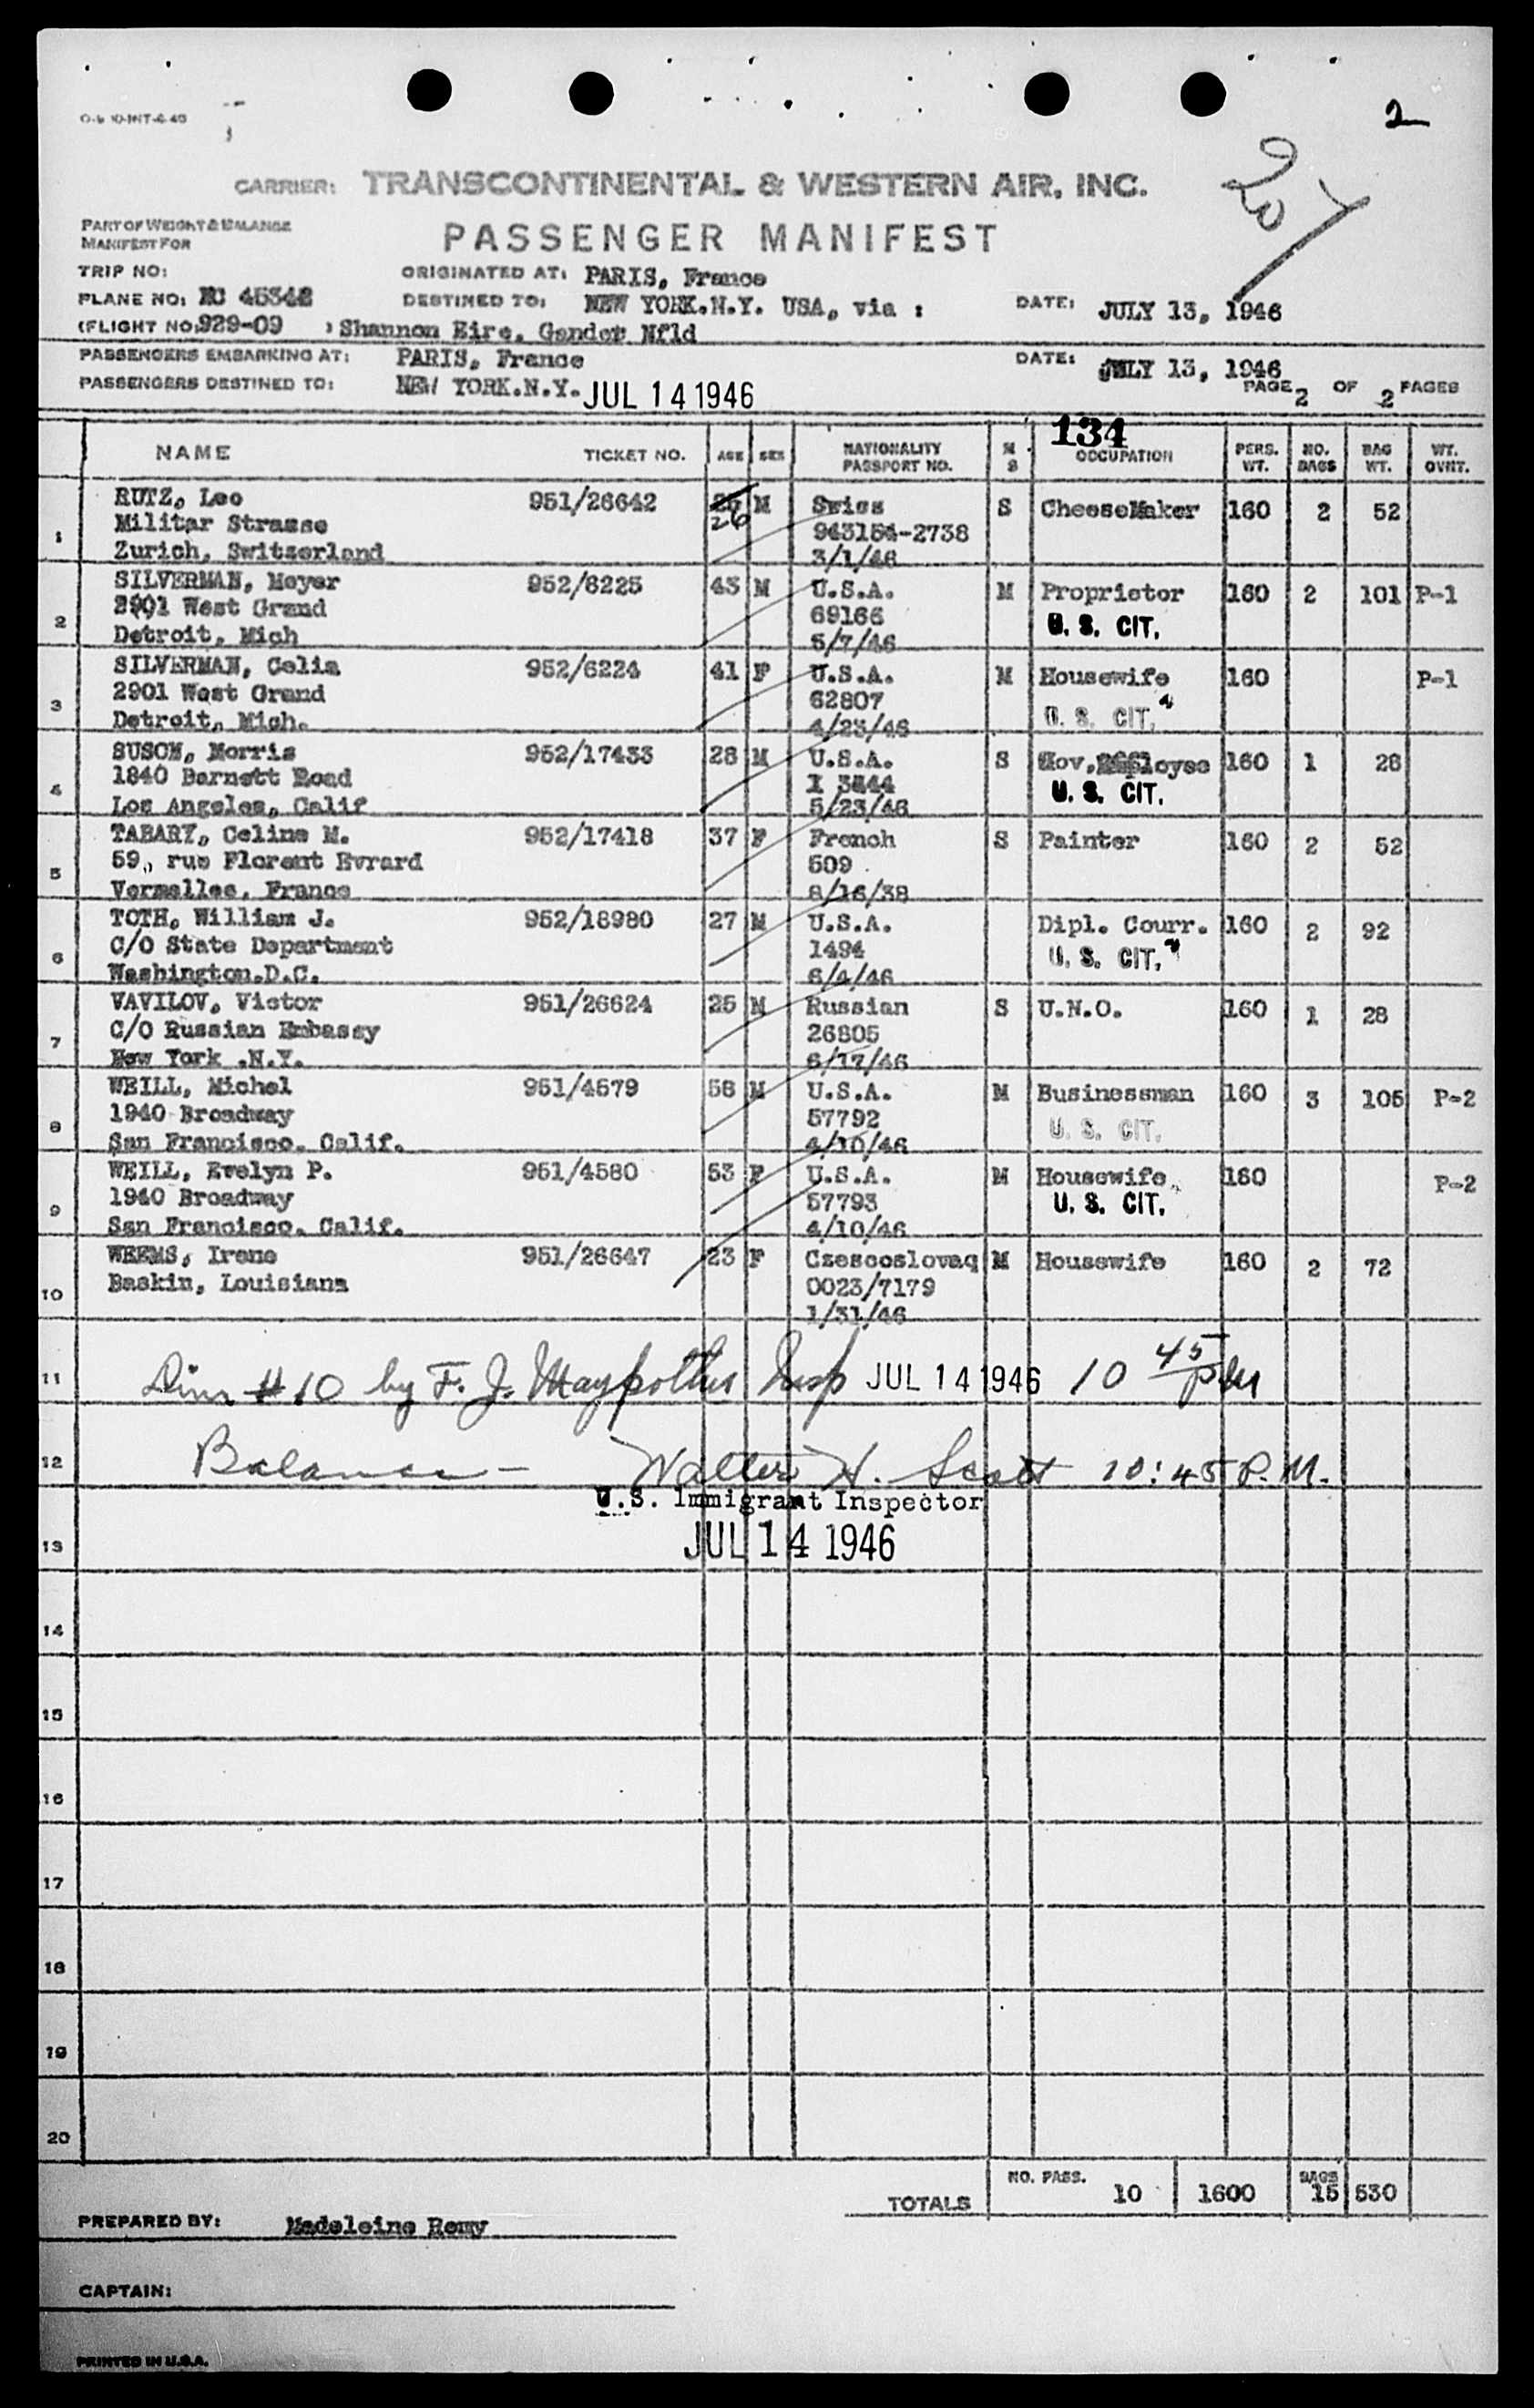 2
CARRIER: TRANSCONTINENTAL & WESTERN AIR, INC.
PART OF WEIGHT & BALANCE
MANIFEST FOR
PASSENGER MANIFEST
TRIP NO:
ORIGINATED AT: PARIS, France
PLANE NO: NC 45342
DESTINED TO: NEW YORK.N.Y. USA, via :
DATE: JULY 13, 1946
(FLIGHT NO: 929-09 ) Shannon Eire, Gander Nfld
PASSENGERS EMBARKING AT: PARIS, France
DATE: JULY 13, 1946
PASSENGERS DESTINED TO: NEW YORK.N.Y. JUL 14 1946
PAGE 2 OF 2 PAGES
134
NAME TICKET NO. AGE SEX NATIONALITY PASSPORT NO. M S OCCUPATION PERS. WT. NO. BAGS BAG WT. WT. OVNT.
1 RUTZ, Leo 951/26642 26 M Swiss S CheeseMaker 160 2 52
Militar Strasse 943154-2738
Zurich, Switzerland 3/1/46
2 SILVERMAN, Meyer 952/6225 43 M U.S.A. M Proprietor 160 2 101 P-1
2901 West Grand 69166 U. S. CIT.
Detroit, Mich 5/7/46
3 SILVERMAN, Celia 952/6224 41 F U.S.A. M Housewife 160 P-1
2901 West Grand 62807 U. S. CIT.
Detroit, Mich. 4/23/46
4 SUSON, Morris 952/17433 28 M U.S.A. S Gov. Employee 160 1 28
1840 Barnett Road U. S. CIT.
Los Angeles, Calif 5/23/46
5 TABARY, Celine M. 952/17418 37 F French S Painter 160 2 52
59, rue Florent Evrard 509
Vermelles, France 8/16/38
6 TOTH, William J. 952/18980 27 M U.S.A. Dipl. Courr. 160 2 92
C/O State Department 1494 U. S. CIT.
Washington.D.C. 6/4/46
7 VAVILOV, Victor 951/26624 25 M Russian S U.N.O. 160 1 28
C/O Russian Embassy 26805
New York .N.Y. 6/17/46
8 WEILL, Michel 951/4579 58 M U.S.A. M Businessman 160 3 105 P-2
1940 Broadway 57792 U. S. CIT.
San Francisco, Calif. 4/10/46
9 WEILL, Evelyn P. 951/4580 53 F U.S.A. M Housewife 160 P-2
1940 Broadway 57793 U. S. CIT.
San Francisco, Calif. 4/10/46
10 WEEMS, Irene 951/26647 23 F Czescoslovaq M Housewife 160 2 72
Baskin, Louisiana 0023/7179
1/31/46
11 #10 by F. J. Insp JUL 14 1946 10 45 PM
12 Balance - Walter H. Scott 10:45 P.M.
U.S. Immigrant Inspector
13 JUL 14 1946
14
15
16
17
18
19
20
TOTALS NO. PASS. 10 1600 BAGS 15 530
PREPARED BY: Madeleine Remy
CAPTAIN:
PRINTED IN U.S.A.